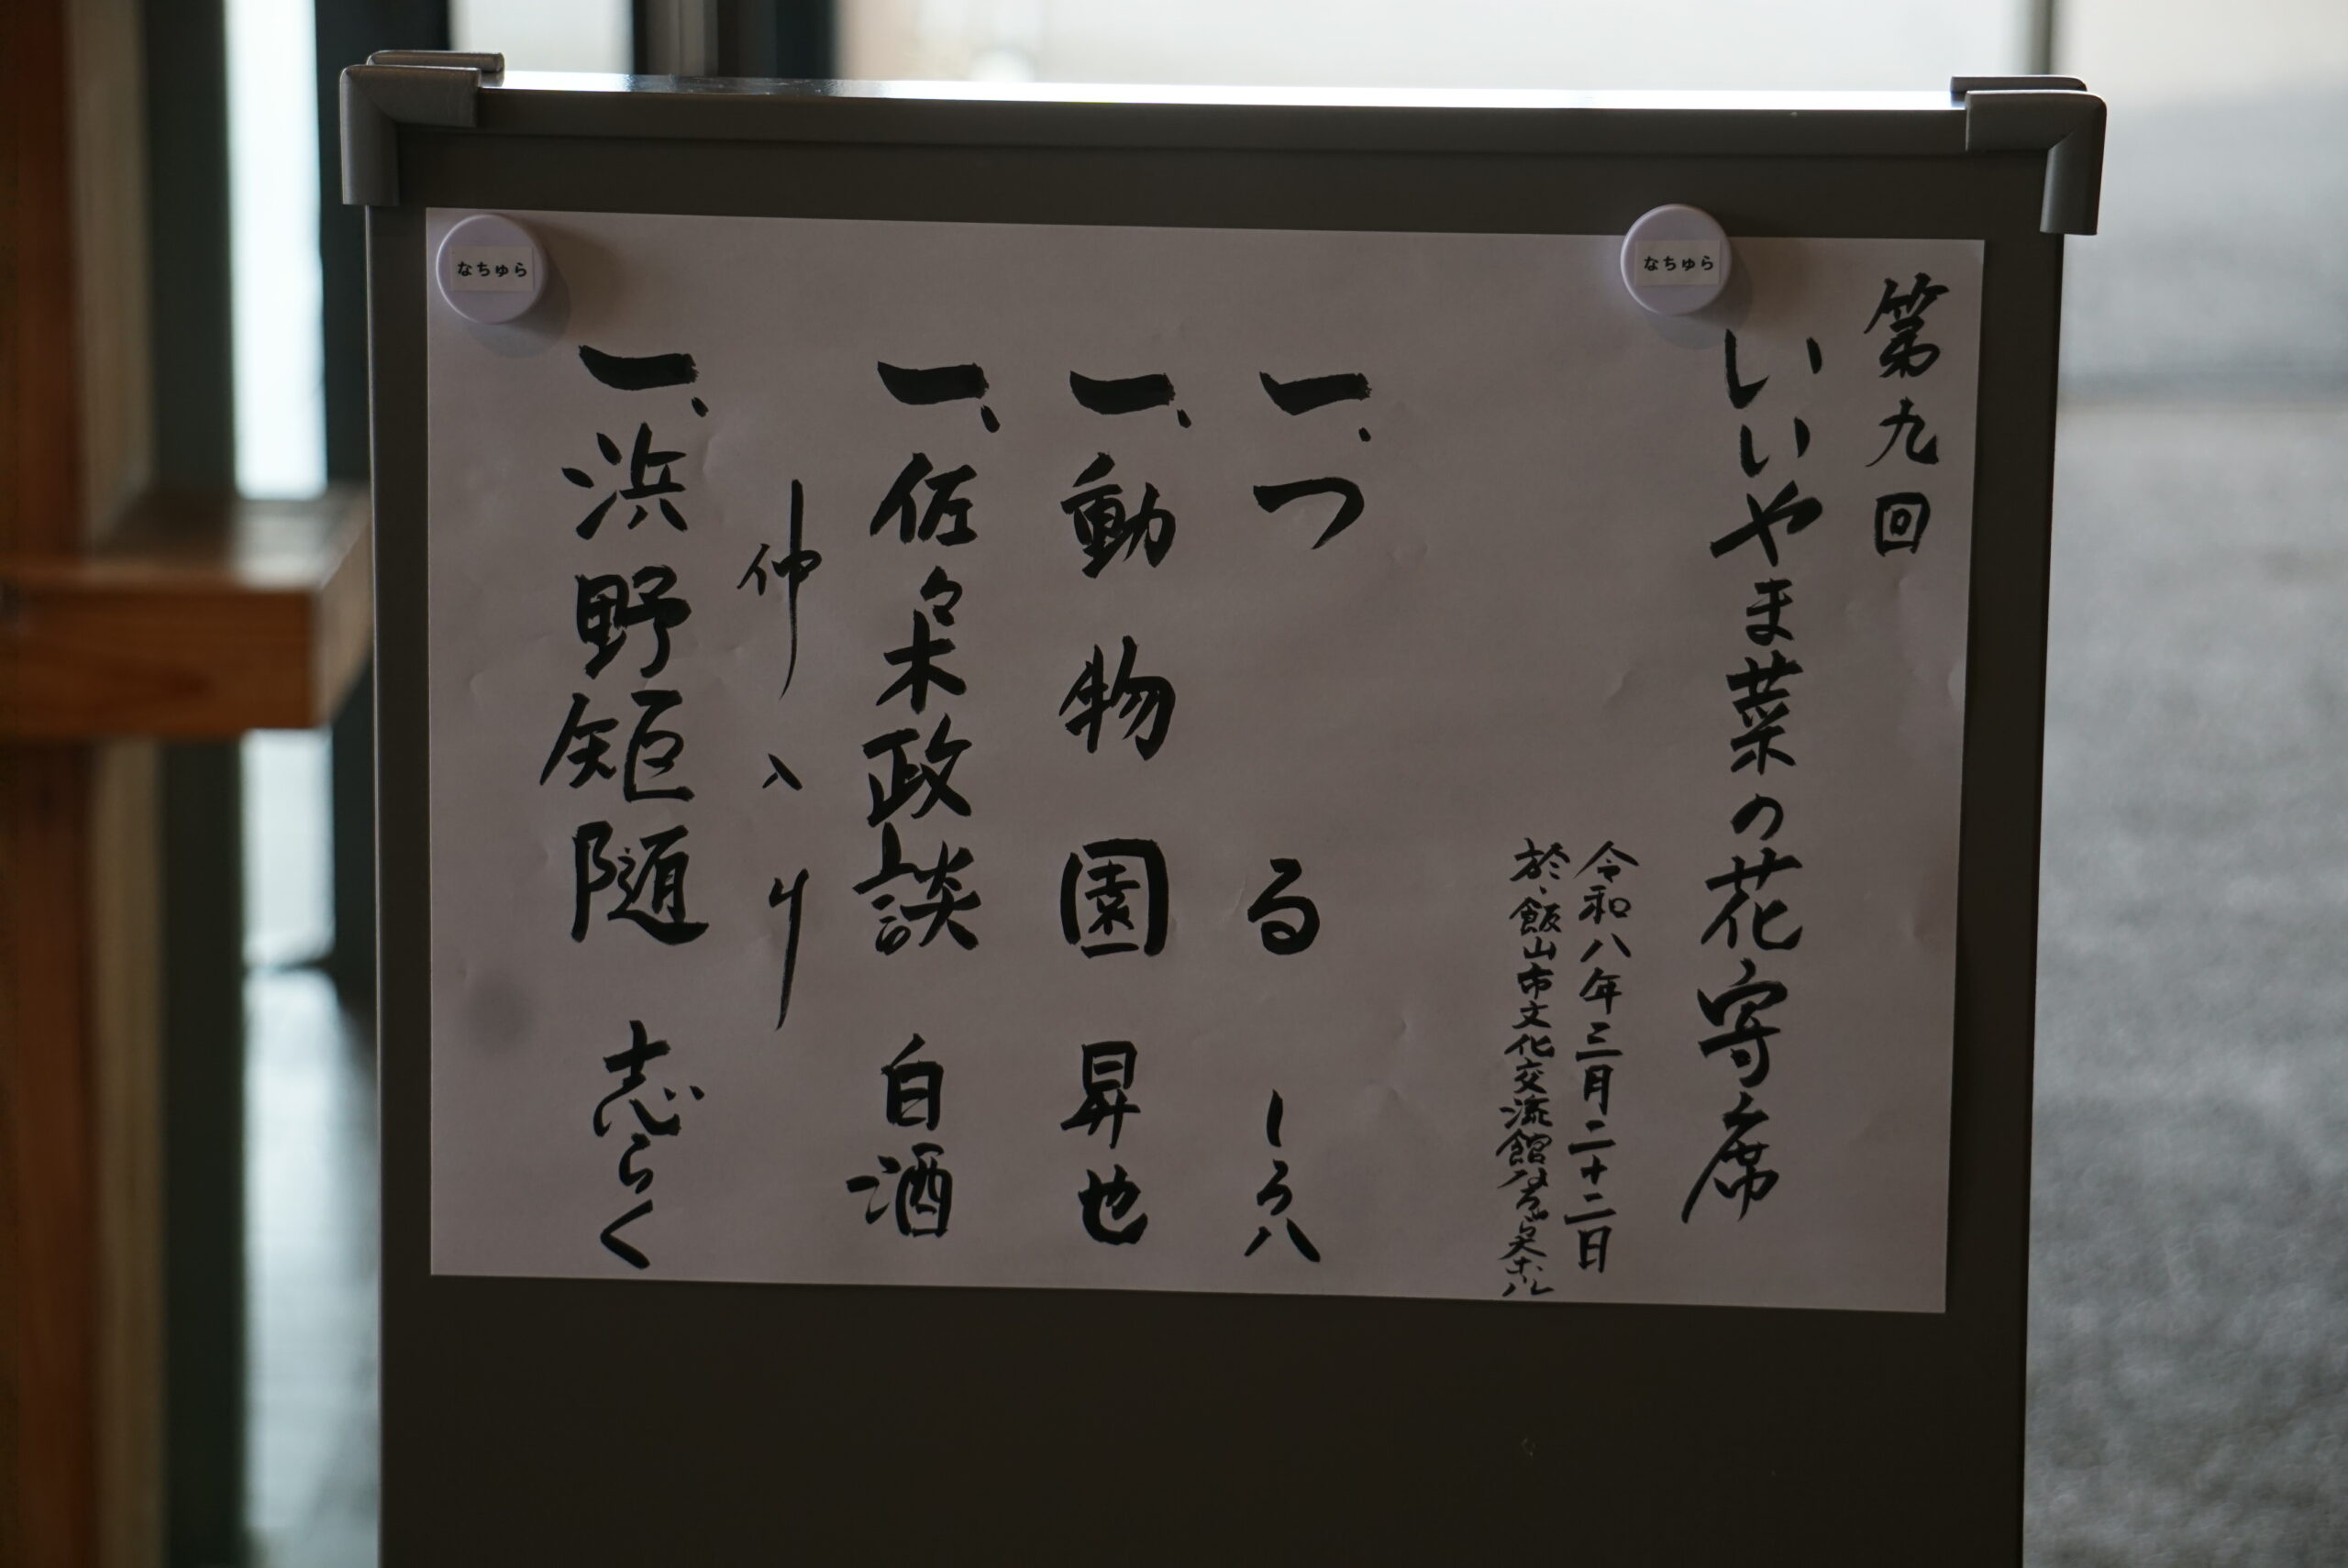 なちゅら
なちゅら
第九回
いいやま菜の花寄席
令和八年三月二十二日
於・飯山市文化交流館なちゅら大ホール
一、つる しろ八
一、動物園 昇也
一、佐々木政談 白酒
仲入り
一、浜野矩随 志らく